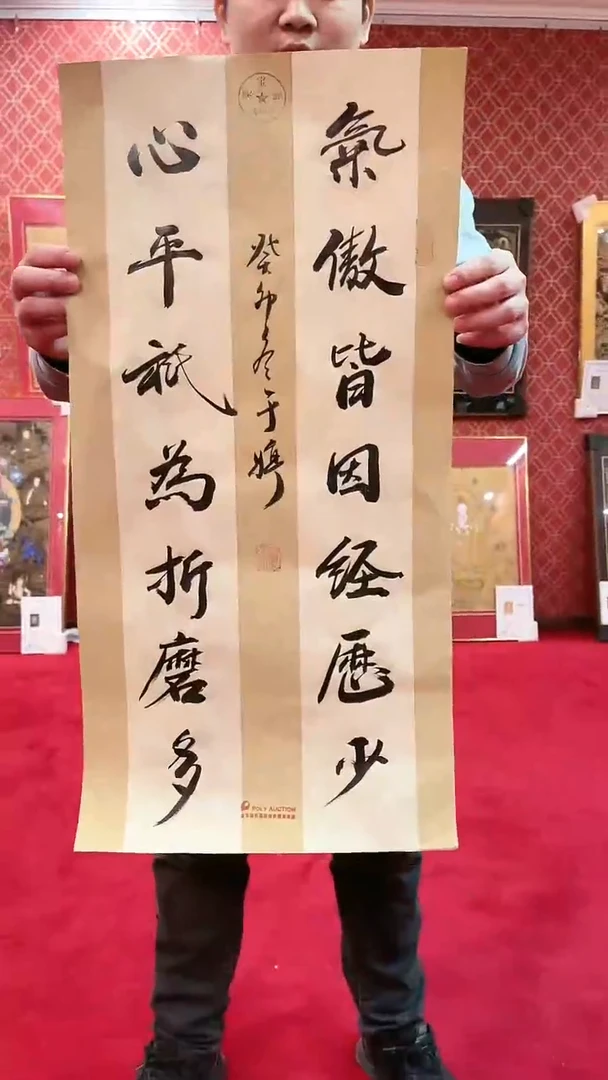 氣傲皆因经歷少
心平祇為折磨多
癸卯冬于娉
POLY AUCTION